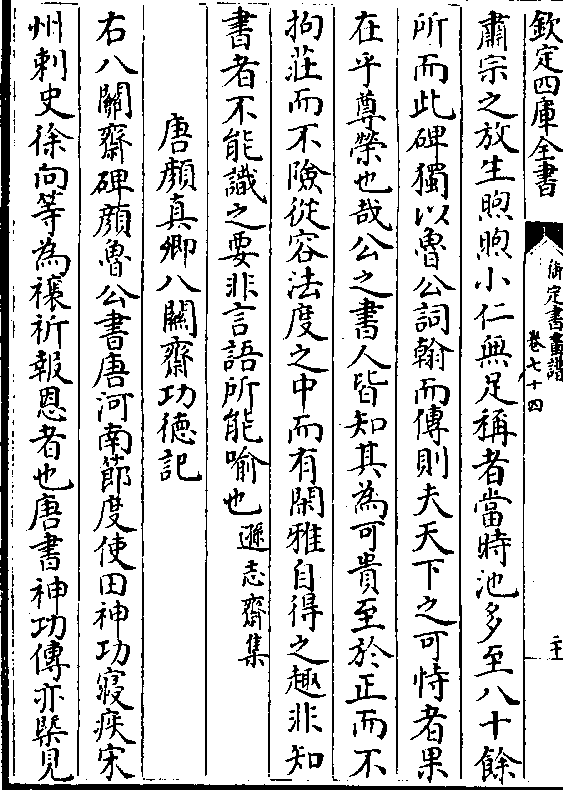 欽定四庫全書
御定書畫譜
卷七十四
肅宗之放生煦煦小仁無足稱者當時池多至八十餘
所而此碑獨以魯公詞翰而傳則夫天下之可恃者果
在乎尊榮也哉公之書人皆知其為可貴至於正而不
拘莊而不險從容法度之中而有閑雅自得之趣非知
書者不能識之要非言語所能喻也遜志齋集
唐顔真卿八關齋功徳記
右八關齋碑顔魯公書唐河南節度使田神功寢疾宋
州刺史徐向等為禳祈報恩者也唐書神功傳亦槩見